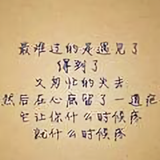 最难过的是遇见了
得到了
又匆忙的失去
然后在心底留了一道疤
它让你什么时候疼
就什么时候疼